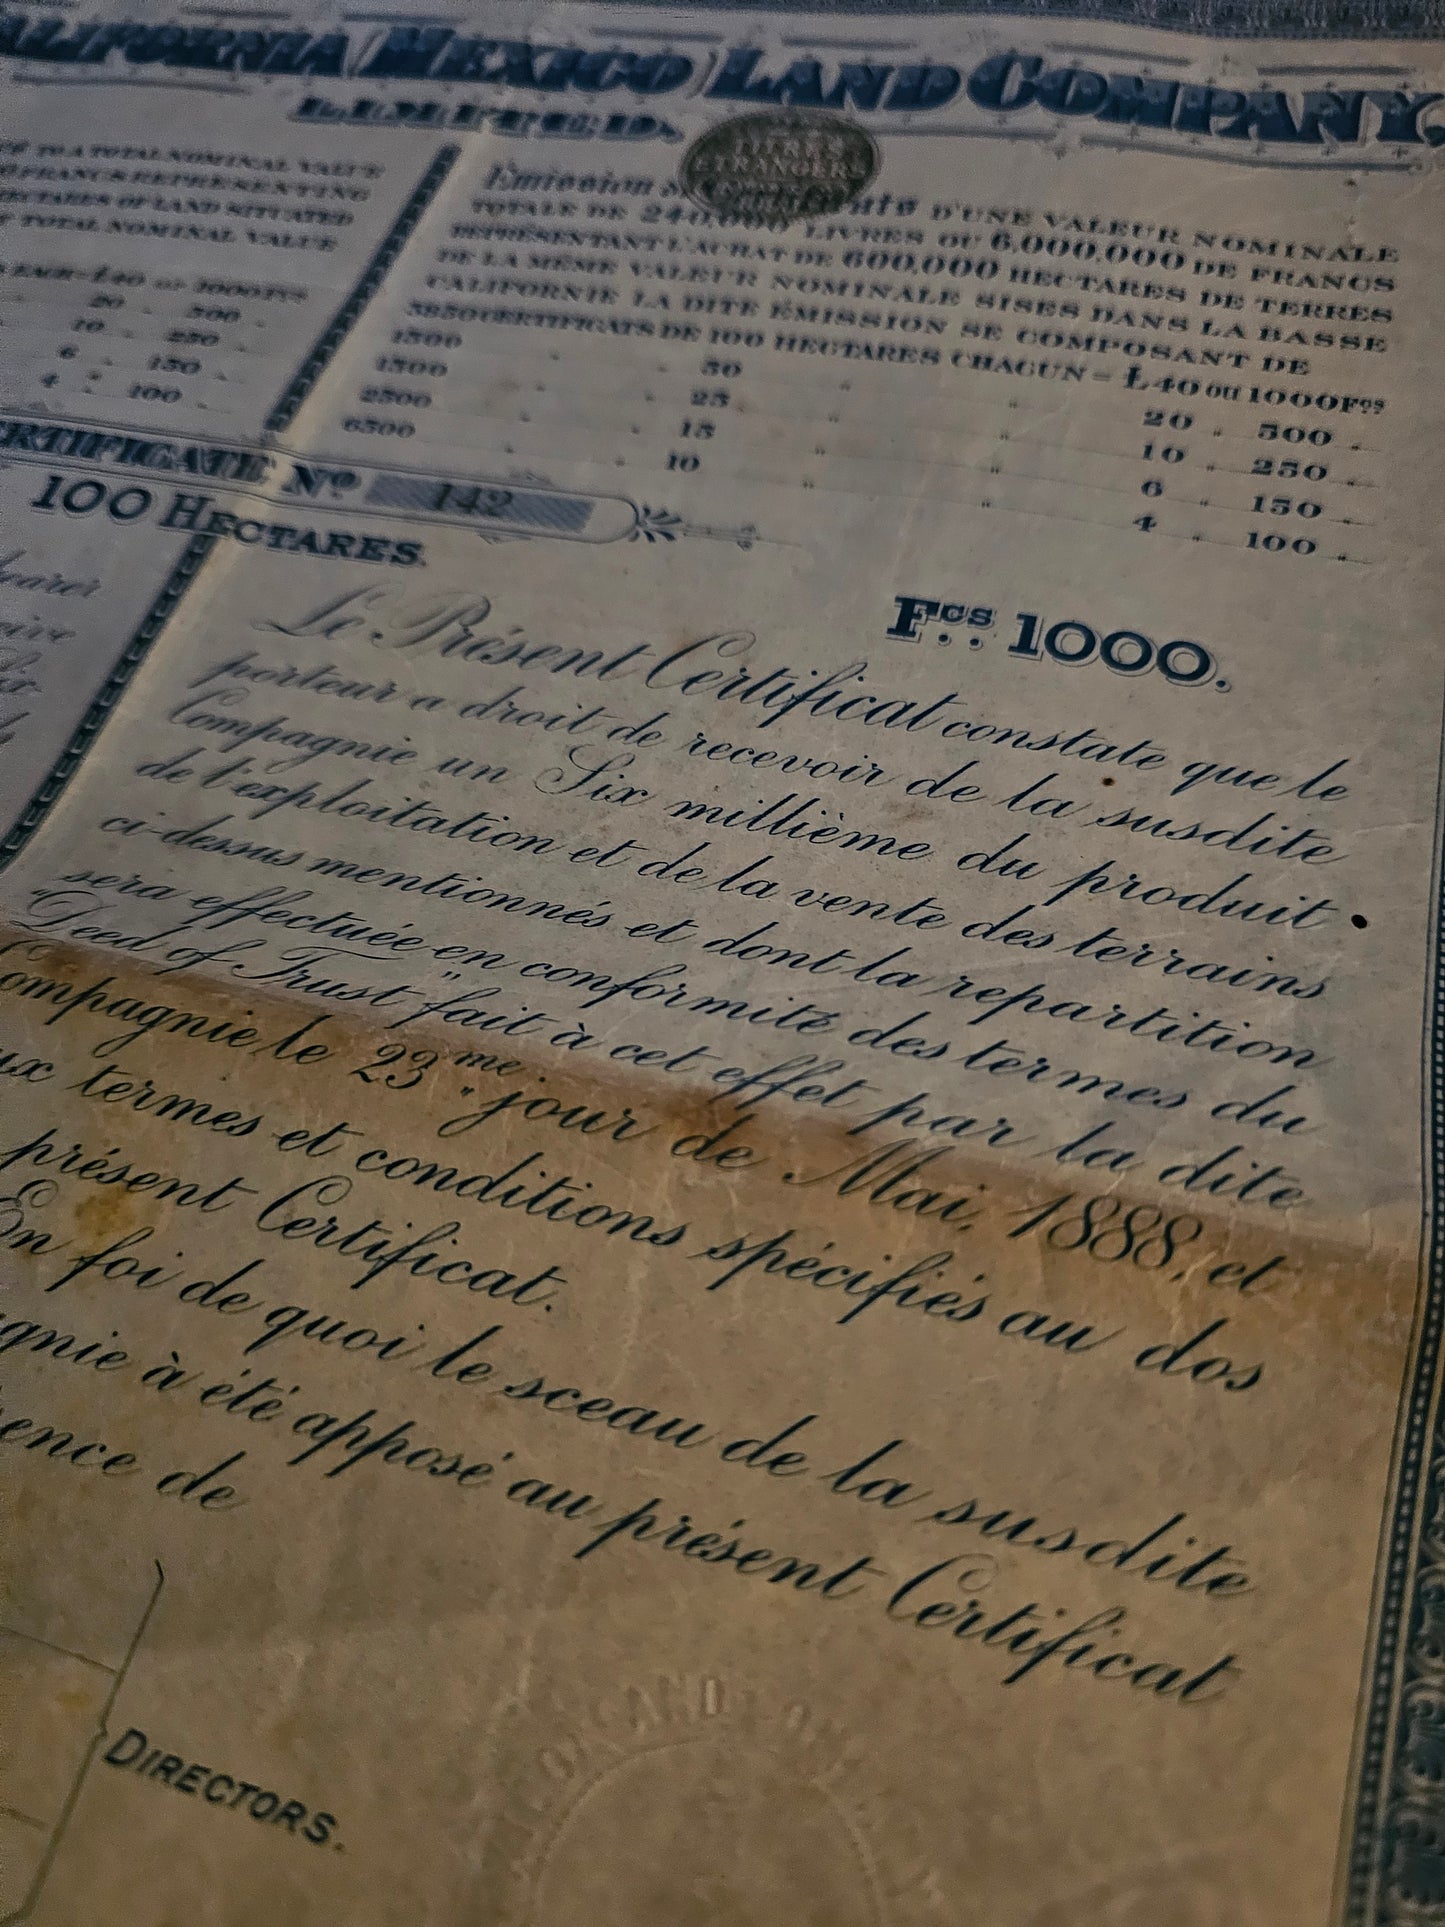 CALIFORNIA (MEXICO) LAND COMPANY,
LIMITED.
TO A TOTAL NOMINAL VALUE
FRANCS REPRESENTING
HECTARES OF LAND SITUATED
TOTAL NOMINAL VALUE
EACH = £40 or 1000 Fcs
20 " 500 "
10 " 250 "
6 " 150 "
4 " 100 "
CERTIFICATE No. 142
100 HECTARES.
TITRES
ETRANGERS
Emission de D'UNE VALEUR NOMINALE
TOTALE DE 240,000 LIVRES OU 6,000,000 DE FRANCS
REPRÉSENTANT L'ACHAT DE 600,000 HECTARES DE TERRES
DE LA MÊME VALEUR NOMINALE SISES DANS LA BASSE
CALIFORNIE LA DITE ÉMISSION SE COMPOSANT DE
3850 CERTIFICATS DE 100 HECTARES CHACUN = £40 ou 1000 Fcs
1300 " " 50 " " 20 " 500 "
1300 " " 25 " " 10 " 250 "
2500 " " 15 " " 6 " 150 "
6500 " " 10 " " 4 " 100 "
Fcs 1000.
Le Présent Certificat constate que le
porteur a droit de recevoir de la susdite
Compagnie un Six millième du produit
de l'exploitation et de la vente des terrains
ci-dessus mentionnés et dont la repartition
sera effectuée en conformité des termes du
"Deed of Trust" fait à cet effet par la dite
Compagnie le 23me jour de Mai, 1888, et
aux termes et conditions spécifiés au dos
présent Certificat.
En foi de quoi le sceau de la susdite
gnie à été apposé au présent Certificat
ence de
DIRECTORS.
LAND